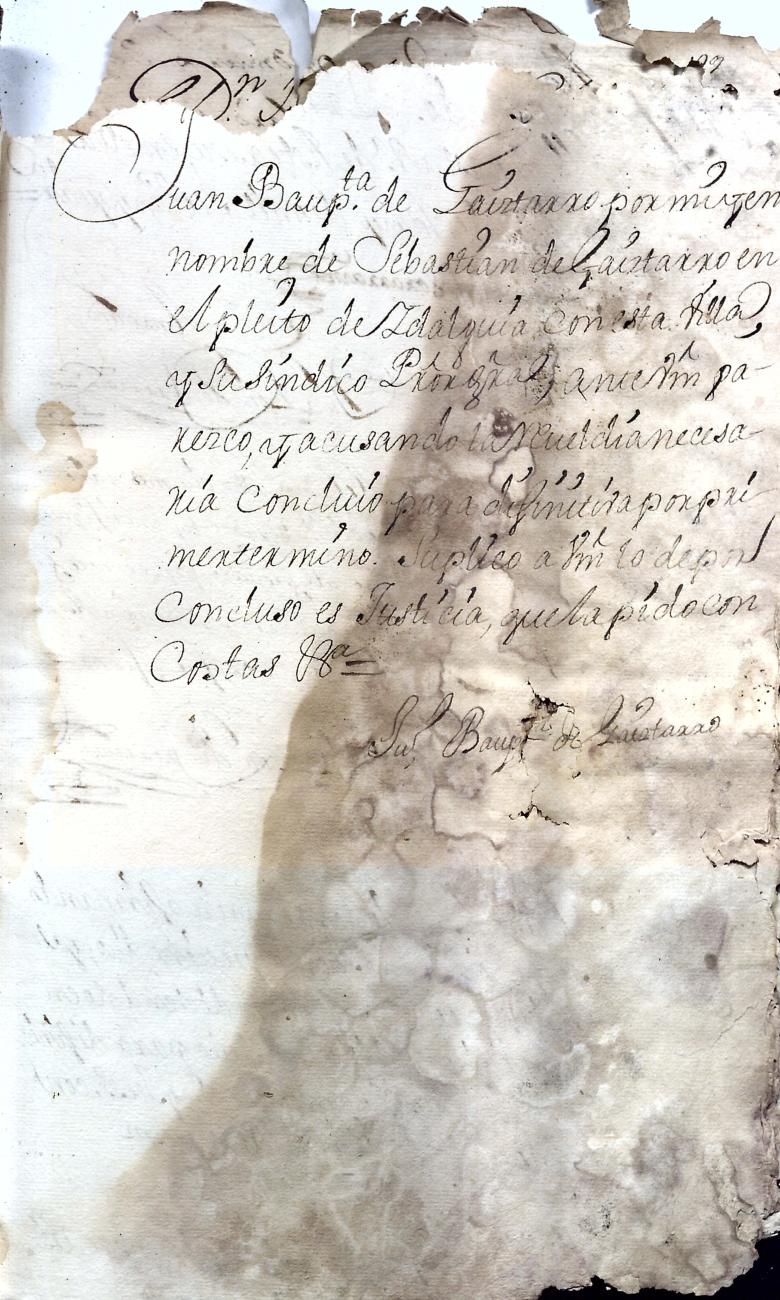 Dn
Juan Baup.ta de Gaiztarro por mi y en
nombre de Sebastian de Gaiztarro en
el pleito de Idalguia con esta Villa,
y su sindico Pror gral, ante Vm pa-
rezco, y acusando la Reueldia necesa-
ria Concluio para difinitiva por pri-
mer termino. Suplico a Vm lo de por
Concluso es Justicia, que la pido con
Costas &a=
Jua Bapta de Gaiztarro